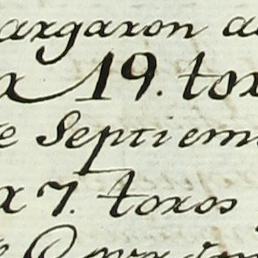 argaron a
x 19. tox
e Septiem
x 7. toxos